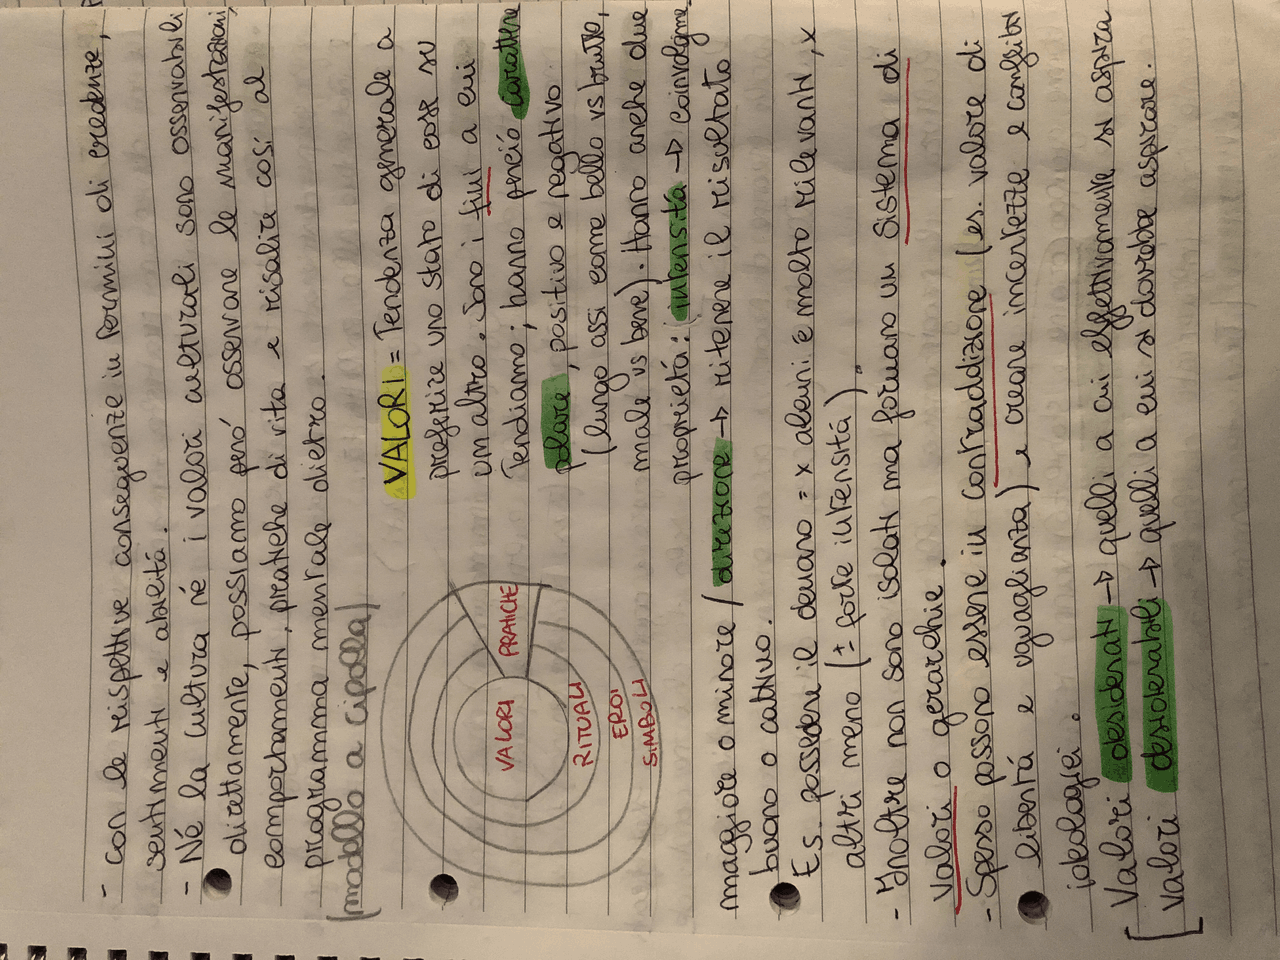 - con le rispettive conseguenze in termini di credenze,
sentimenti e abilitá.
- Né la cultura né i valori culturali sono osservabili
direttamente, possiamo peró osservare le manifestazioni,
comportamenti, pratiche di vita e risalire così al
programma mentale dietro.
(modello a cipolla)
VALORI = Tendenza generale a
preferire uno stato di cose su
un altro. Sono i fini a cui
Tendiamo; hanno perció carattere
polare, positivo e negativo
(lungo assi come bello vs brutto,
male vs bene). Hanno anche due
proprietá: intensitá → coinvolgime
VALORI
PRATICHE
RITUALI
EROI
SIMBOLI
maggiore o minore / direzione → ritenere il risultato
buono o cattivo.
Es. possedere il denaro = x alcuni é molto rilevante, x
altri meno (± forte intensitá).
- Inoltre non sono isolati ma formano un sistema di
valori o gerarchie.
- Spesso possono essere in contraddizione (es. valore di
libertá e uguaglianza) e creare incertezze e conflitti
ideologici.
Valori desiderati → quelli a cui effettivamente si aspira
Valori desiderabili → quelli a cui si dovrebbe aspirare.